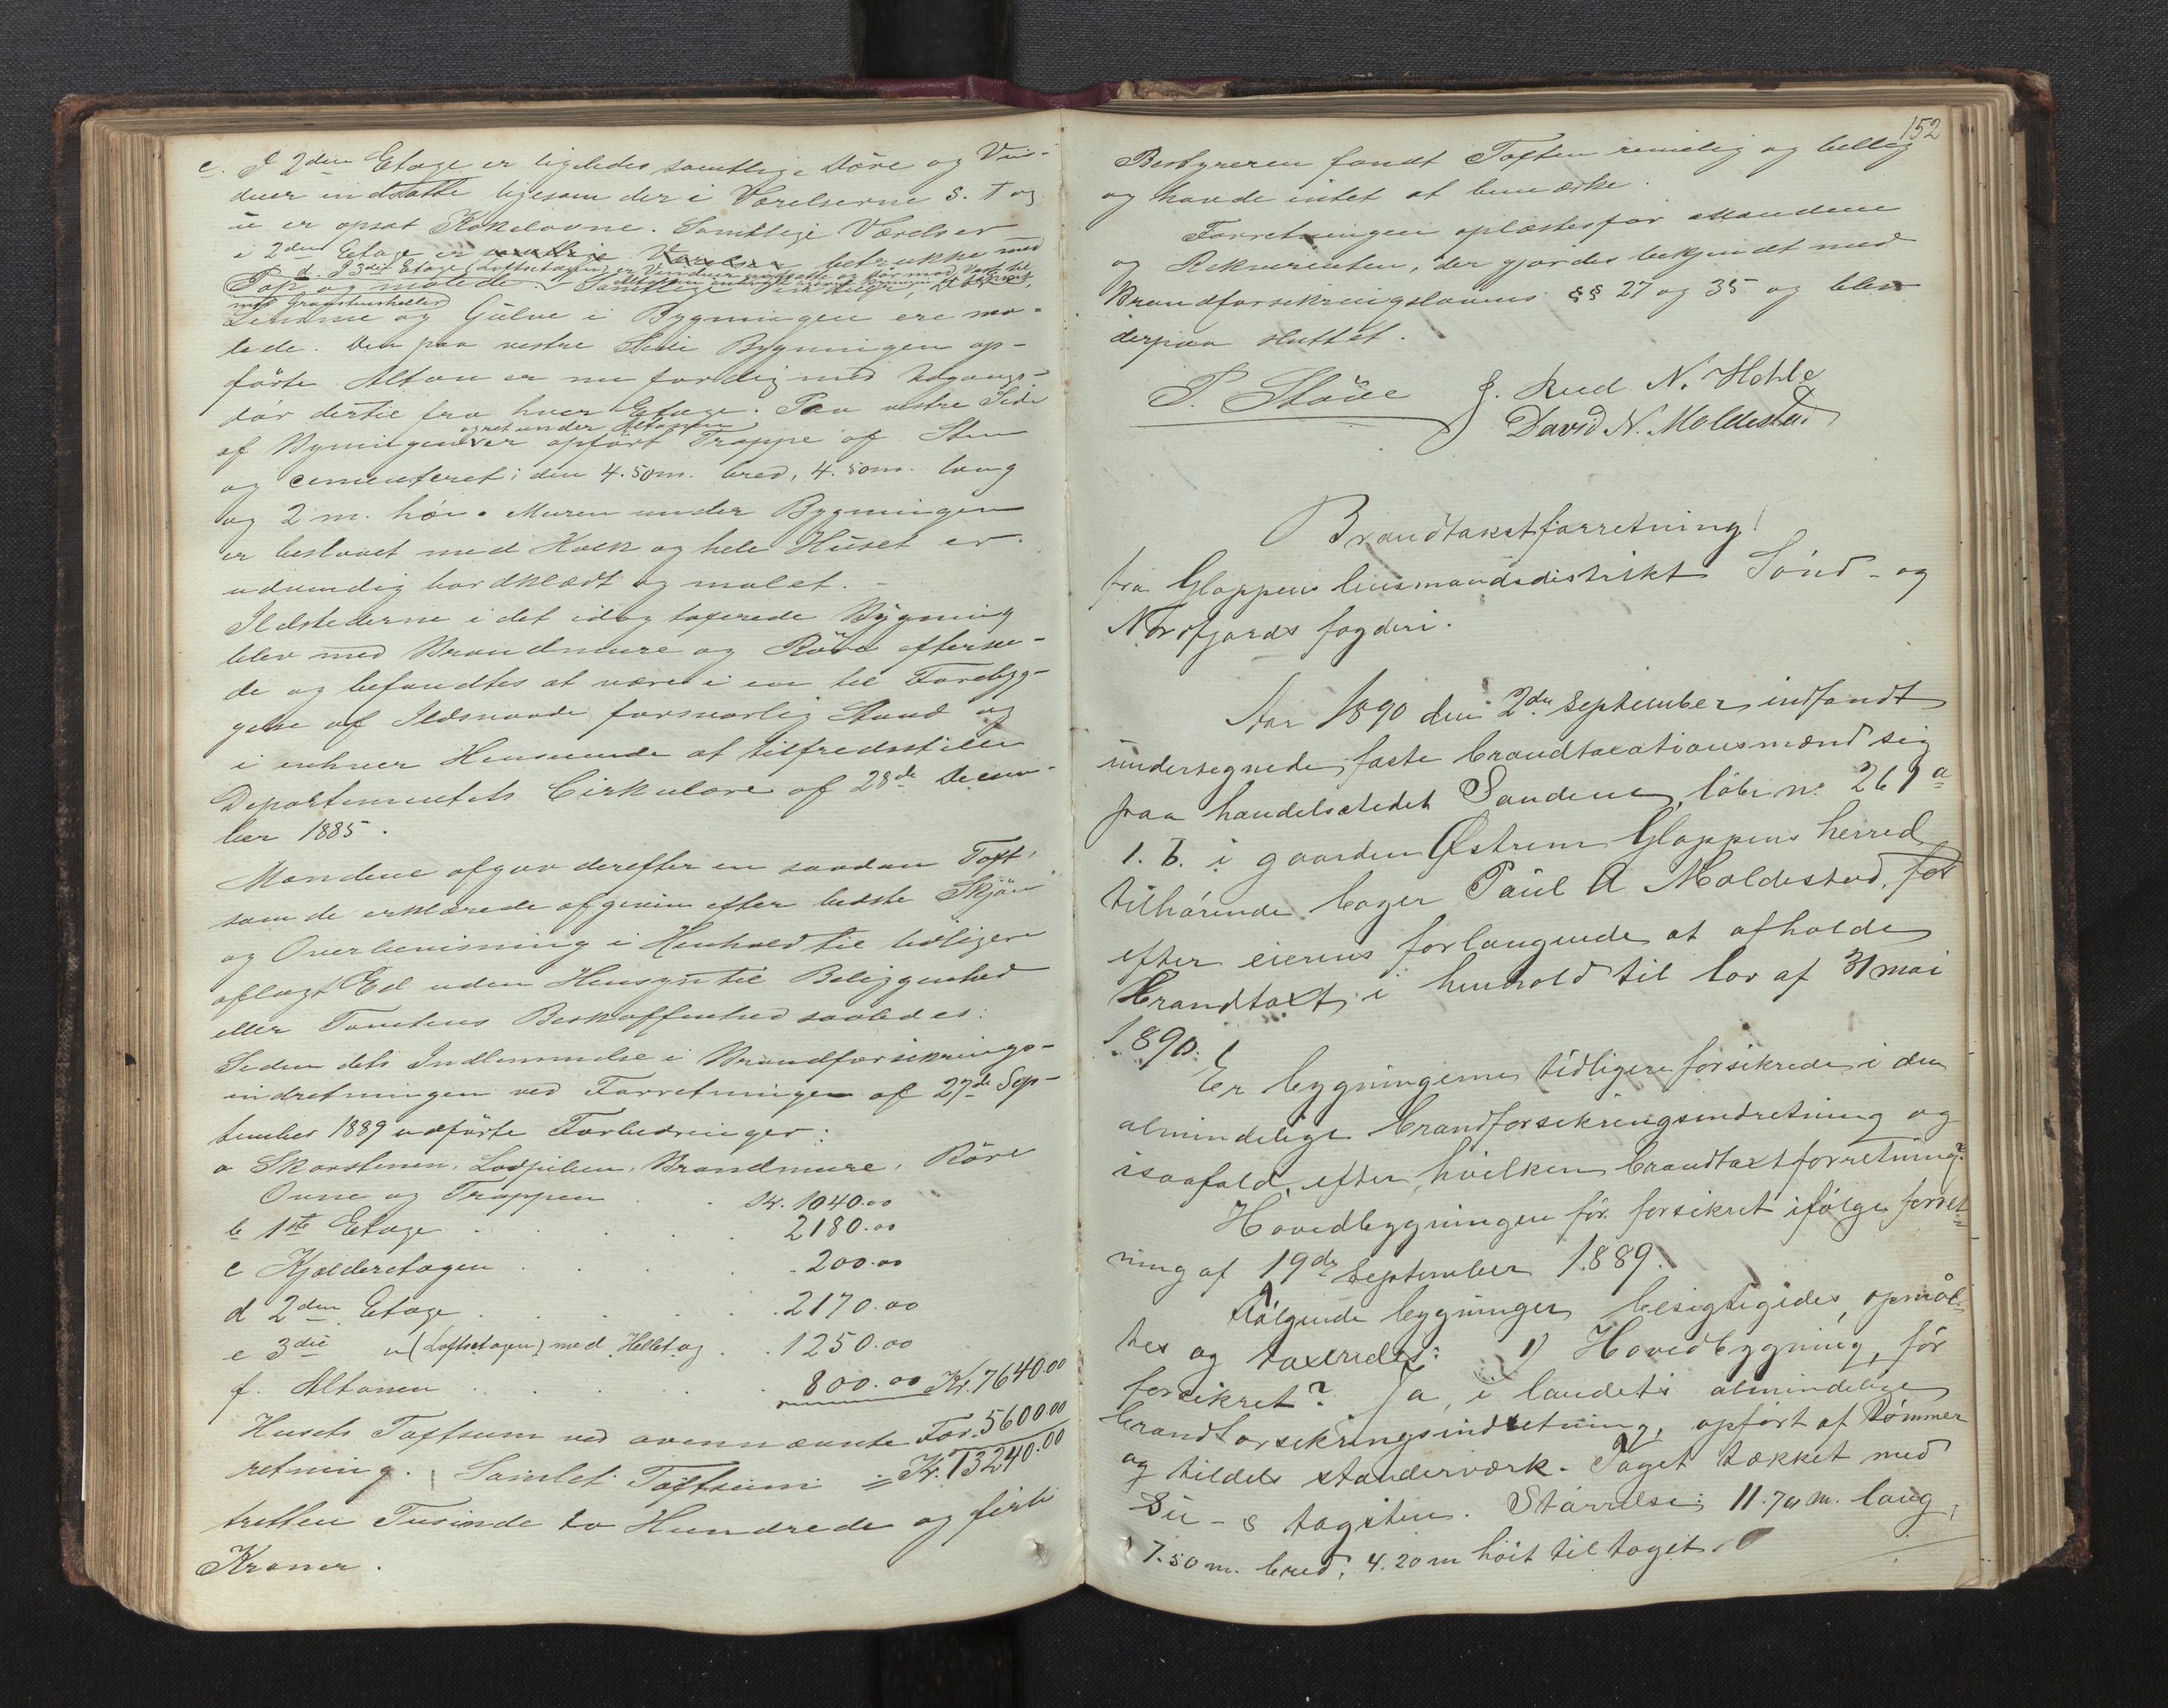 c. I 2den Etage er ligeledes samtlige Döre og Vin-
duer indsatte ligesom der i Værelserne s. t og
u er opsat Kakelovne. Samtlige Værelser
i 2den Etage er betrukke med
d. I 3die Etage (Loftsetagen) er Vinduer indsatte og dör mod Vest til
Pap og malede. Samtlige
med Graastensheller
Listerne og Gulve i Bygningen ere ma-
lede. Den paa vestre Side Bygningen op-
förte Altan er nu færdig med Udgangs-
dör dertil fra hver Etage. Paa vestre Side
og ret under Altanen
af Bymingen er opfört Trappe af Sten
og cementeret; den 4.50m. bred, 4.50m. lang
og 2 m. höi. Muren under Bygningen
er beslaaet med Kalk og hele Huset er
udvendig bordklædt og malet.
Ildstederne i det idag taxerede Bygning
blev med Brandmure og Rörs efterse-
de og befandtes at være i en til Forebyg-
gelse af Ildsvaade forsvarlig Stand og
i enhver Henseende at tilfredsstille
Departementets Cirkulære af 28de Decem-
ber 1885.
Mændene afgav derefter en saadan Taxt,
som de erklærede afgiven efter bedste Skjön
og Overbevisning i Henhold til tidligere
aflagt Ed uden Hensyn til Beliggenhed
eller Tomtens Beskaffenhed saaledes:
Siden dets Indlemmelse i Brandforsikrings-
indretningen ved Forretningen af 27de Sep-
tember 1889 udförte Forbedringer:
a Skorstenen, Lodpiben, Brandmure, Röre
Ovne og Trappen . . Kr. 1040.00
b 1ste Etage . . . . 2180.00
c Kjelderetagen . . . . 200.00
d 2den Etage . . . . 2170.00
e 3die " (Loftsetagen) med Helletag . . 1250.00
f. Altanen . . . . 800.00 Kr. 7640.00
Husets Taxtsum ved ovennævnte For- 5600.00
retning. Samlet Taxtsum = Kr. 13240.00
tretten Tusinde to Hundrede og firti
Kroner.
152
Bestyreren fandt Taxten rimelig og billig
og havde intet at bemærke.
Forretningen oplæstes for Mændene
og Rekvirenten, der gjordes bekjendt med
Brandforsikringslovens §§ 27 og 35 og blev
derpaa sluttet.
P. Stöve J. Rud N. Hohle
David N. Moldestad
Brandtakstforretning
fra Gloppens lensmandsdistrikt Sönd- og
Nordfjords fogderi.
Aar 1890 den 2den September indfandt
undertegnede faste brandtaxationsmænd sig
paa handelsstedet Sandene, löbe no. 261a
1. b. i gaarden Østrem Gloppens herred
tilhörende bager Paul A Moldestad, for
efter eierens forlangende at afholde
Brandtaxt i henhold til lov af 31 mai
1890.
Er bygningerne tidligere forsikrede i den
almindelige brandforsikringsindretning og
isaafald, efter hvilken brandtaxtforretning?
Hovedbygningen för forsikret ifölge forret-
ning af 19de September 1889.
Fölgende bygninger besigtigedes, opmål-
tes og taxeredes: 1) Hovedbygning, för
forsikret? Ja, i landets almindelige
brandforsikringsindretning, opfört af tömmer
og tildels standerværk. Taget tækket med
Su-s tagsten. Störrelse: 11.70 m. lang,
7.50 m. bred, 4.20 m höit til taget.